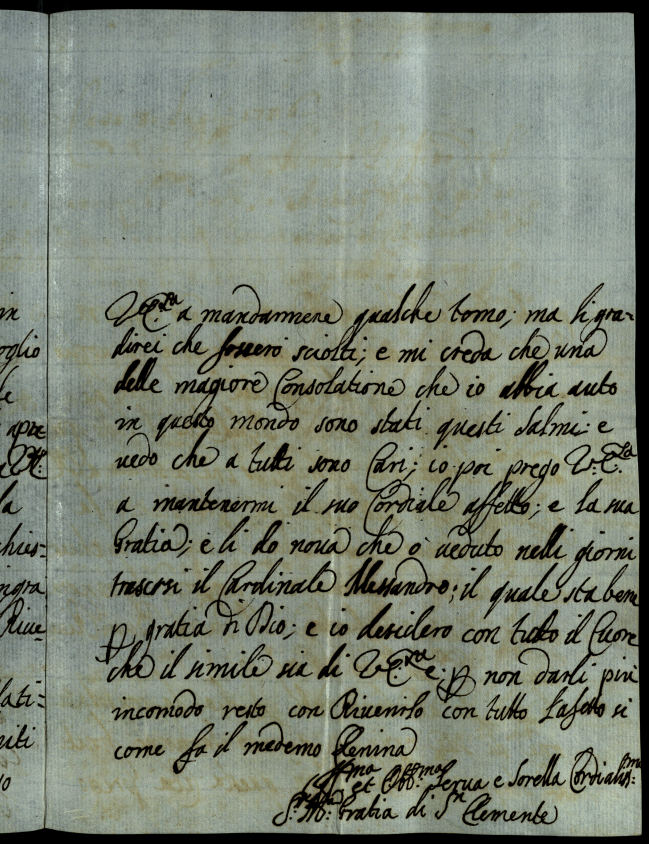 V.E.za a mandarmene qualche tomo; ma li gra=
direi che fossero sciolti; e mi creda che una
delle magiore Consolatione che io abbia auto
in questo mondo sono stati questi Salmi: e
uedo che a tutti sono Cari; io poi prego V.E.za
a mantenermi il suo Cordiale affetto; e la sua
Gratia; e li do noua che ò ueduto nelli giorni
trascorsi il Cardinale Alessandro; il quale sta bene
p gratia di Dio; e io desidero con tutto il Cuore
che il simile sia di V.E.za e; p non darli più
incomodo resto con Riuerirlo con tutto l'afetto si
come fa il mademo
et Obb.ma Serua e Sorella Cordialis:ma
Gratia di Sn Clemente
in
oglio
le
apre
la
chies=
ingra
Riue=
lati=
uiti